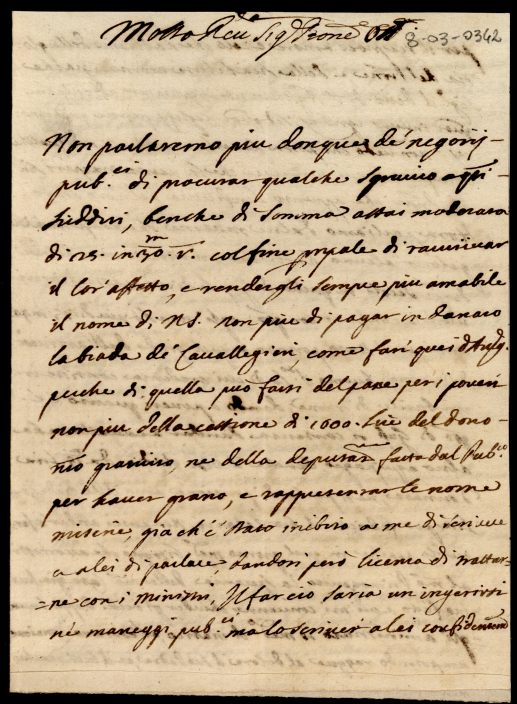 Molto Reu.do Sig.r Pro.ne Oss.mo
8-03-0342
Non parlaremo piu donque de' negotij
pub.ci di procurar qualche sgrauio a q.sti
sudditi, benche di somma assai moderata
di 25. in 30.m v. col fine pn̄pale di rauuiuar
il lor' affetto, e rendergli sempre piu amabile
il nome di N.S. non piu di pagar in danaro
la biada de' Cauallegieri, come fan' quei d'Auig.
perche di quella può farsi del pane per i poueri
non piu della cessione di 1000. lire del dono
gratuito, ne della deputat.ne fatta dal Pub.co
per hauer grano, e rappresentar le nostre
miserie, già ch'è stato inibito a me di scriuere
e a lei di parlare, dandosi però licenza di trattar-
=ne con i ministri, Il farcio saria un ingerirsi
ne' maneggi pub.ci ma lo scriuer a lei confidentem.